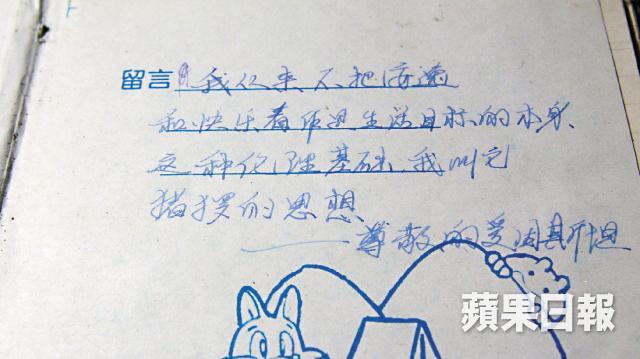 留言 我从来不把安逸
和快乐看作是生活目标的本身
这种伦理基础,我叫它
猪猡的思想
——尊敬的爱因斯坦
蘋果日報